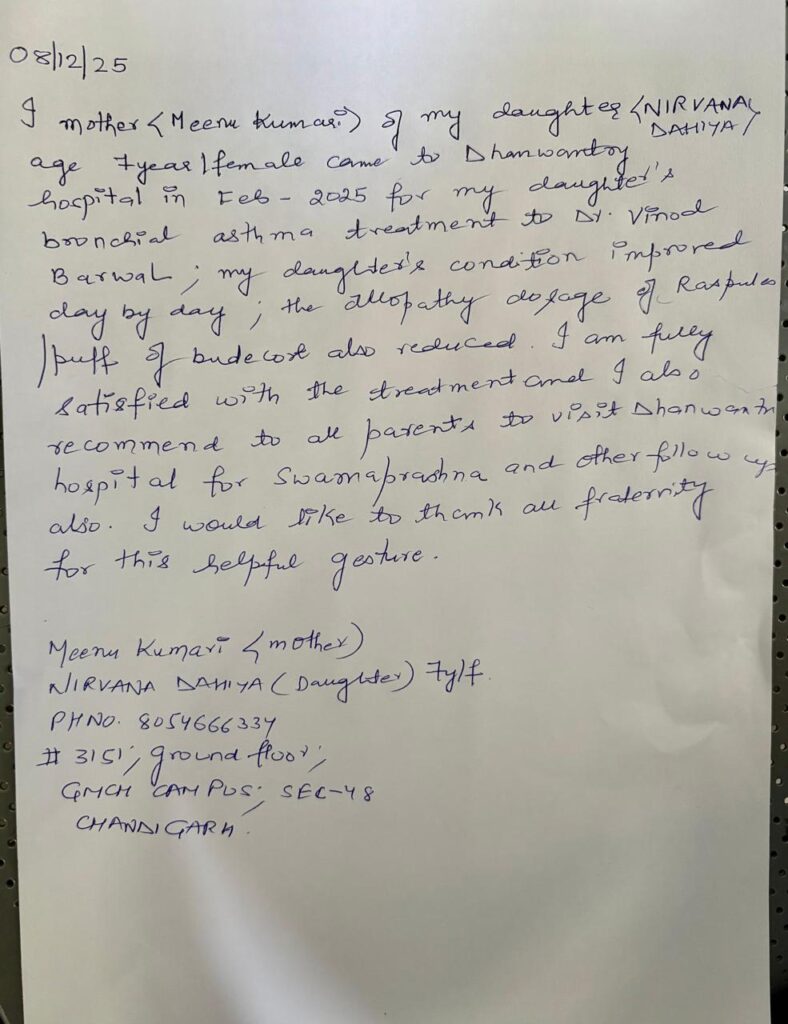 08/12/25
I mother (Meenu Kumari) of my daughter (NIRVANA
DAHIYA)
age 7year/female came to Dhanwantry
hospital in Feb - 2025 for my daughter's
bronchial asthma treatment to Dr. Vinod
Barwal ; my daughter's condition improved
day by day ; the allopathy dosage of Raspules
/puff of budecort also reduced. I am fully
satisfied with the treatment and I also
recommend to all parents to visit Dhanwantry
hospital for Swarnaprashna and other follow up
also. I would like to thank all fraternity
for this helpful gesture.
Meenu Kumari (mother)
NIRVANA DAHIYA (Daughter) 7y/f.
PHNO. 8054666334
# 3151, ground floor,
GMCH CAMPUS, SEC-48
CHANDIGARH.